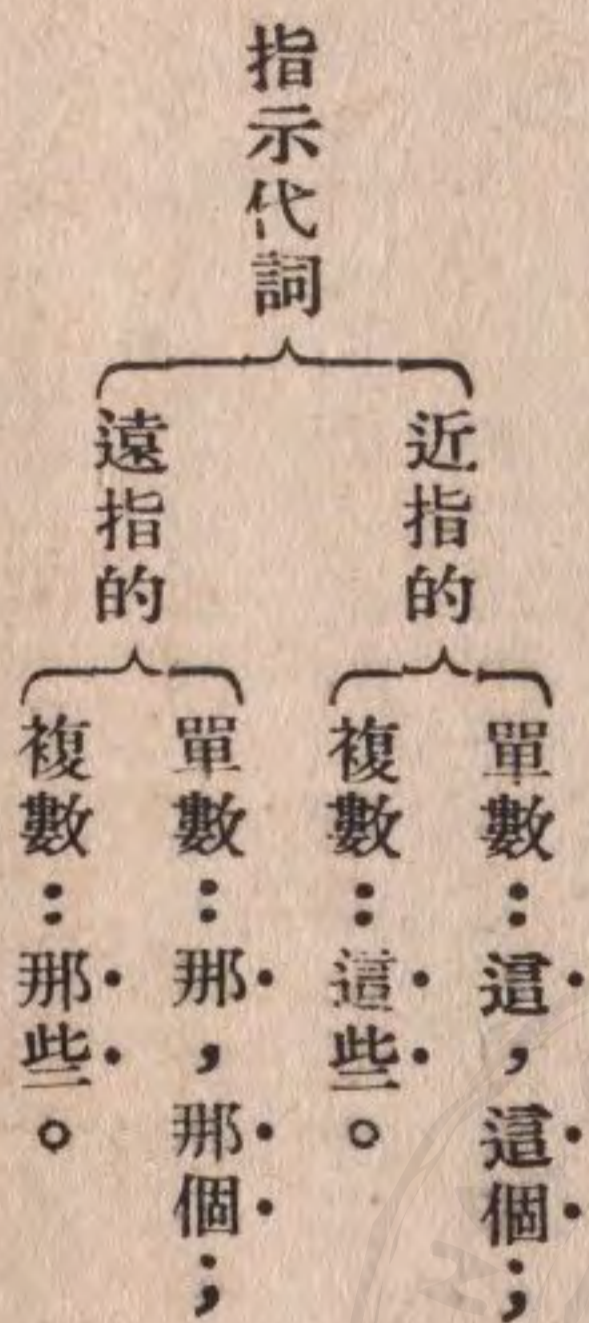 指示代詞
近指的
單數：這，這個；
複數：這些。
遠指的
單數：那，那個；
複數：那些。